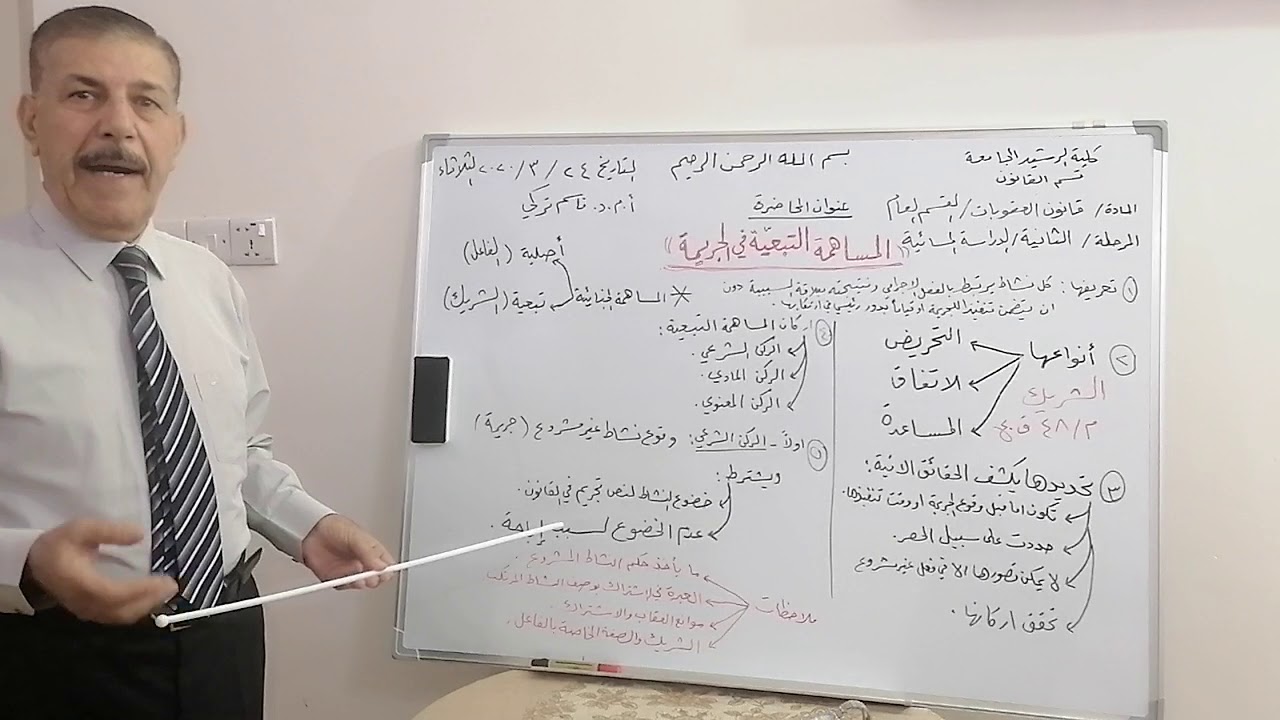 بسم الله الرحمن الرحيم
كلية الرشيد الجامعة
قسم القانون
التاريخ ٢٤ / ٣ / ٢٠٢٠ الثلاثاء
أ.م.د. قاسم تركي
المادة/ قانون العقوبات/القسم العام
المرحلة/ الثانية/الدراسة المسائية
عنوان المحاضرة
((المساهمة التبعية في الجريمة))
١ تعريفها: كل نشاط يرتبط بالفعل الاجرامي ونتيجته بعلاقة السببية دون
ان يتضمن تنفيذ الجريمة او قياماً بدور رئيسي في ارتكابها.
٢ أنواعها
التحريض
الاتفاق
المساعدة
الشريك
م/٤٨ ق.ع
٣ تحديدها يكشف الحقائق الاتية:
تكون اما قبل وقوع الجريمة او وقت تنفيذها.
حددت على سبيل الحصر.
لا يمكن تصورها الا في فعل غير مشروع
تحقق اركانها.
* المساهمة الجنائية
أصلية (الفاعل)
تبعية (الشريك)
٤ اركان المساهمة التبعية:
الركن الشرعي.
الركن المادي.
الركن المعنوي.
٥ اولاً - الركن الشرعي: وقوع نشاط غير مشروع (جريمة)
ويشترط:
خضوع النشاط لنص تجريم في القانون.
عدم الخضوع لسبب إباحة.
ملاحظات
ما يأخذ حكم النشاط المشروع.
العبرة في الاشتراك بوصف النشاط المرتكب
موانع العقاب والاشتراك.
الشريك والصفة الخاصة بالفاعل.